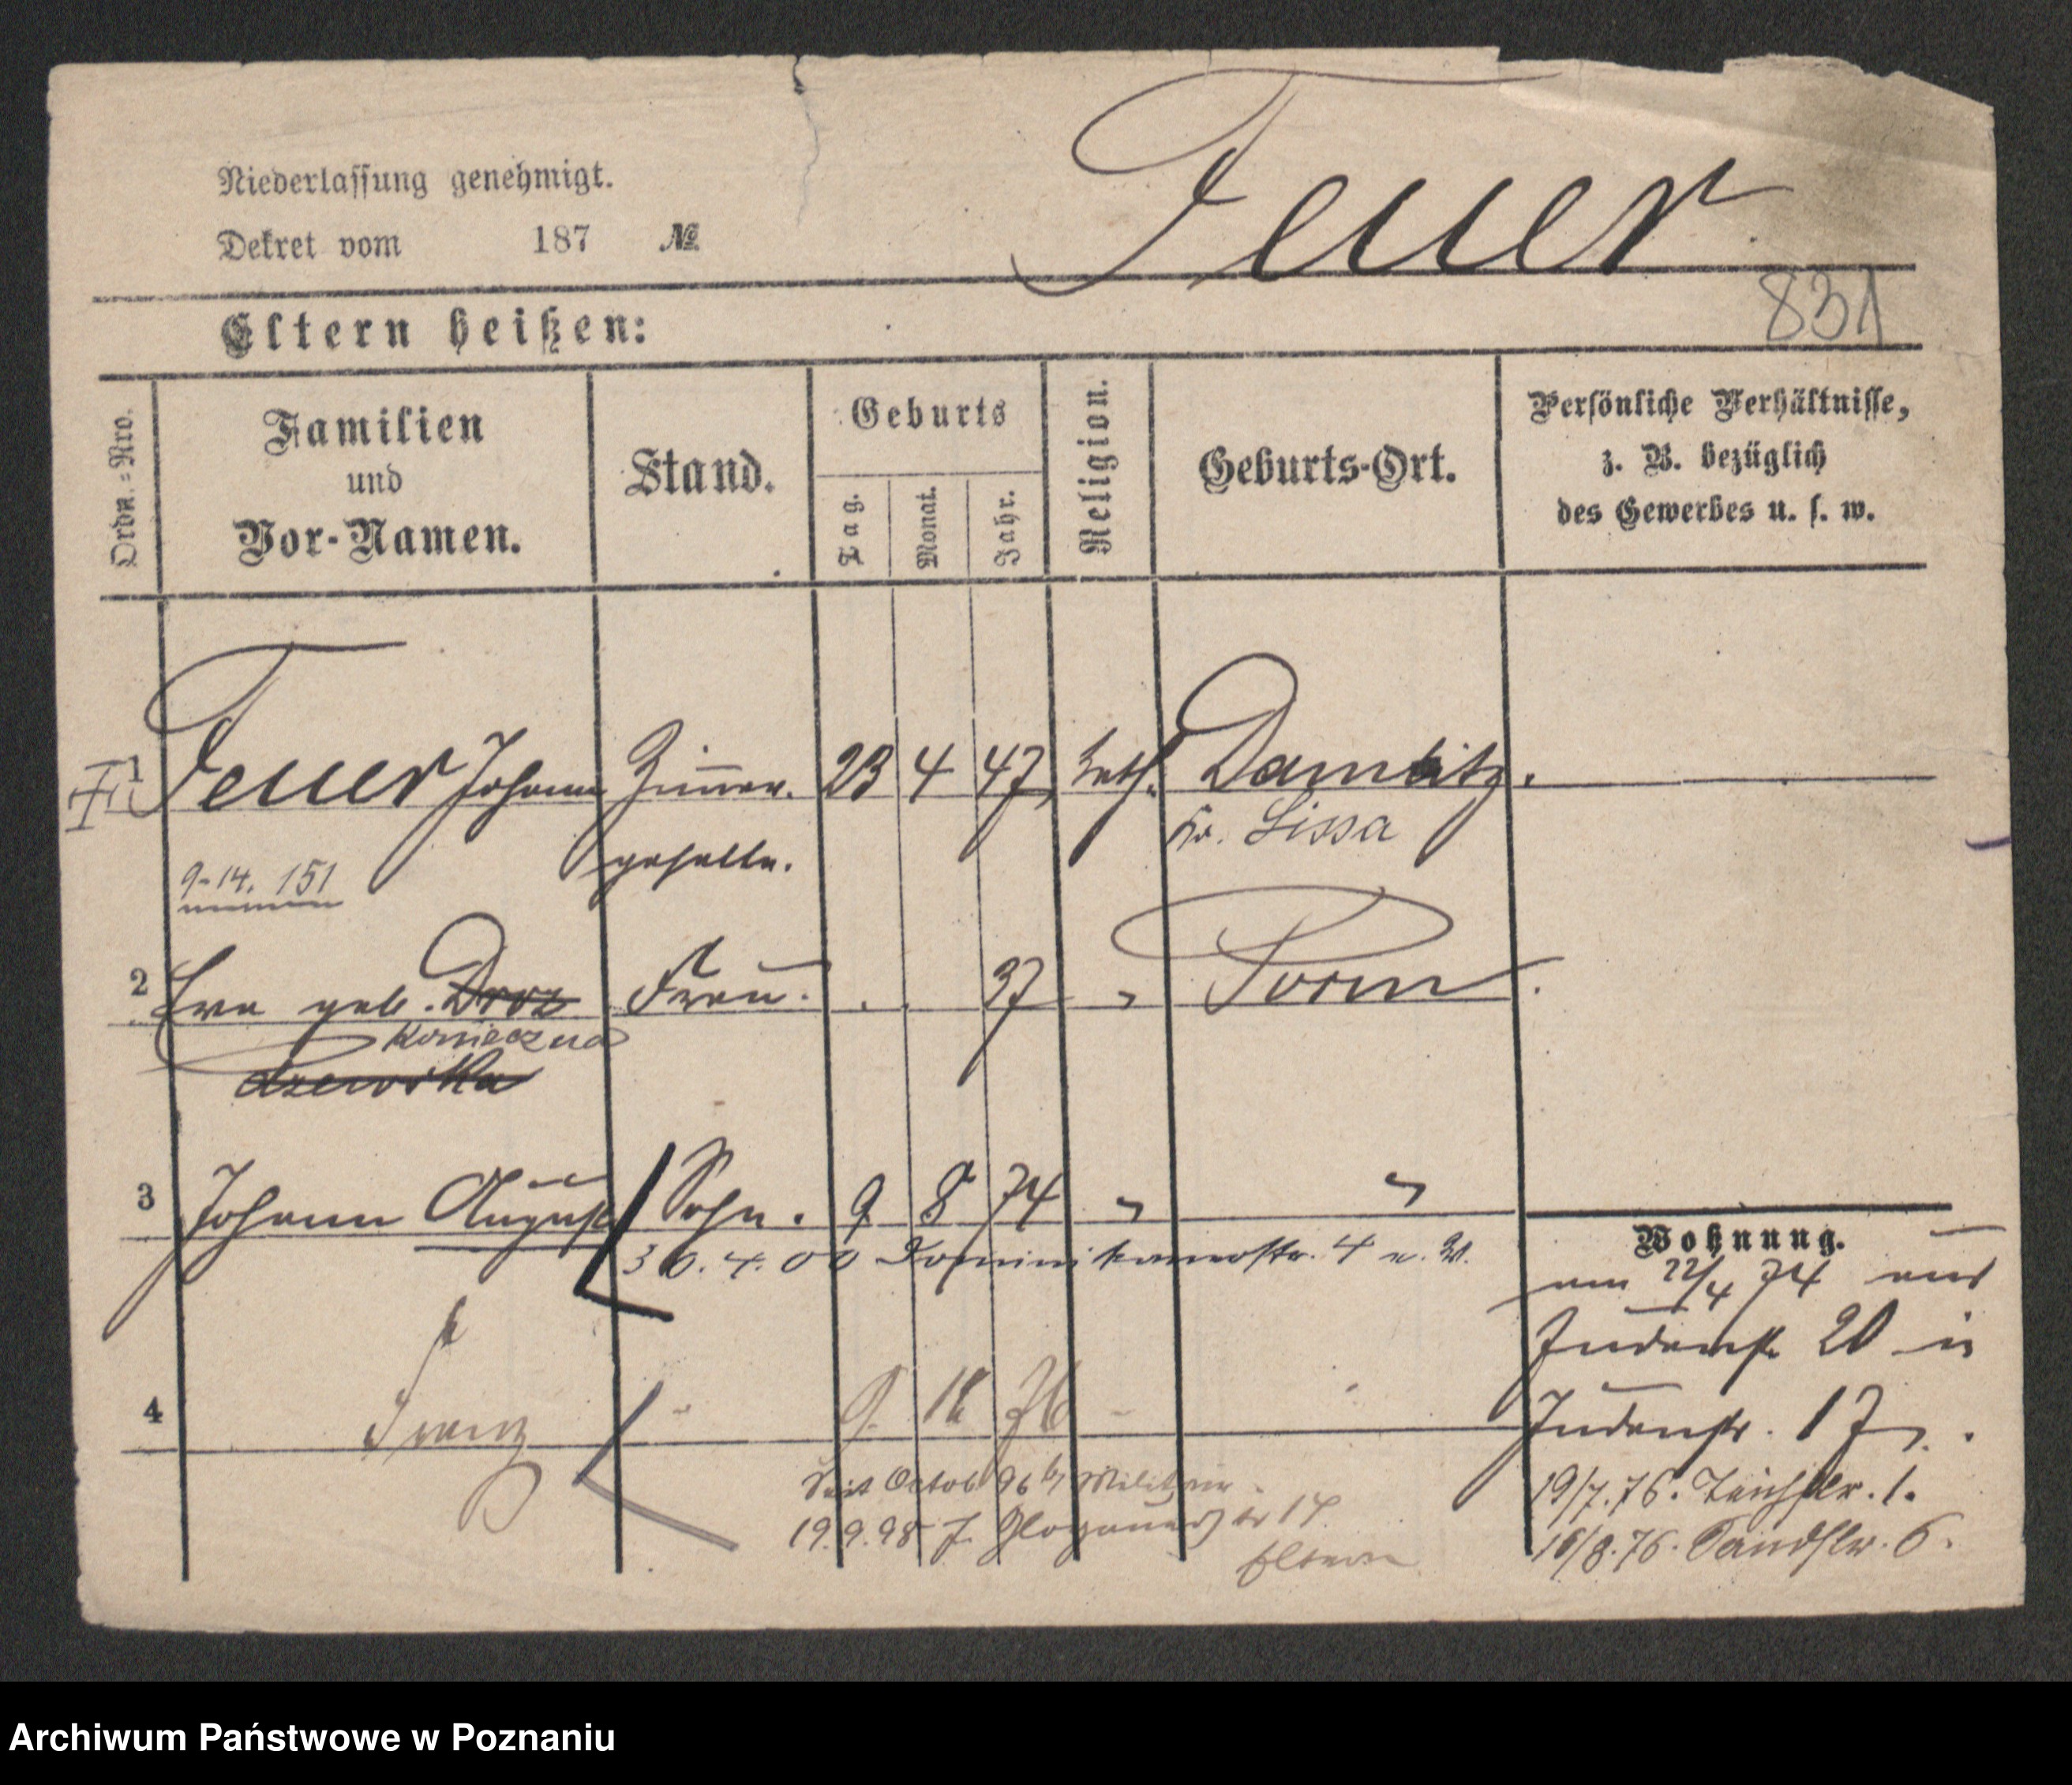 Niederlassung genehmigt.
Dekret vom 187 №
Feuer
831
Eltern heißen:
Ordn.-Nro.
Familien
und
Vor-Namen.
Stand.
Geburts
Tag.
Monat.
Jahr.
Religion.
Geburts-Ort.
Persönliche Verhältnisse,
z. B. bezüglich
des Gewerbes u. s. w.
1 Feuer Johann Zimmer. 23 4 47 kath. Damitz.
geselle. Kr. Lissa
9-14. 151
2 Eva geb. Droz Frau. 37 " Posen.
Konieczna
dzewska
3 Johann August Sohn. 9 8 74 " "
30.4.00 Dominikanerstr. 4 n. W.
4 Franz 9. 76
Seit Octob 96 Militair
19.9.98 Glogauerstr 14
Eltern
Wohnung.
am 22/4 74 aus
Judenstr 20 in
Judenstr. 17.
19/7.76. Teichstr. 1.
16/8.76. Sandstr. 6.
Archiwum Państwowe w Poznaniu